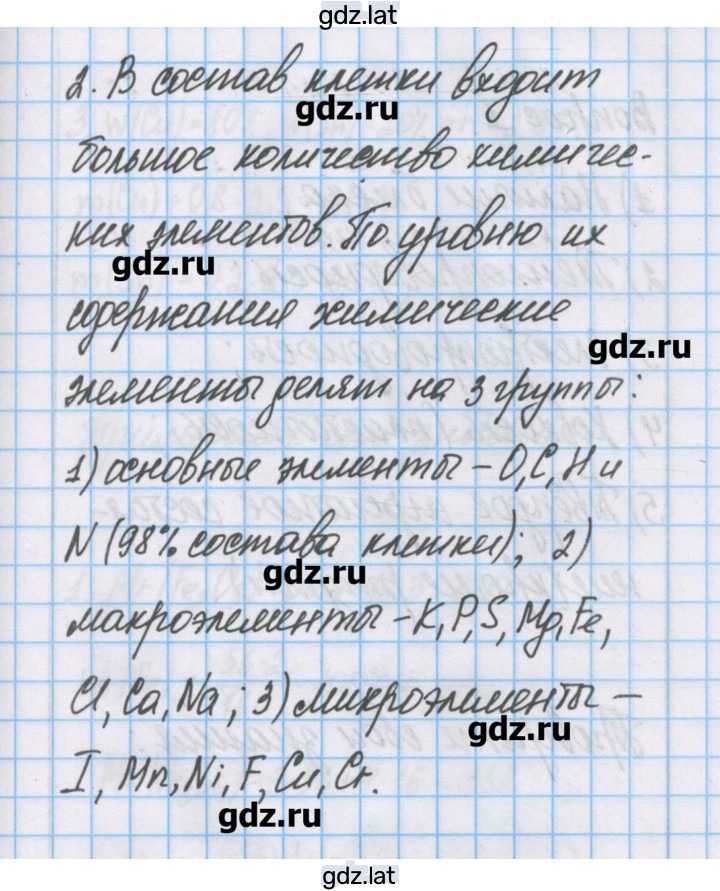 gdz.lat
2. В состав клетки входит
gdz.ru
большое количество химичес-
ких элементов. По уровню их
gdz.ru
содержания химические
gdz.ru
элементы делят на 3 группы:
1) основные элементы – O, C, H и
N (98% состава клетки); 2)
gdz.ru
макроэлементы – K, P, S, Mg, Fe,
Cl, Ca, Na; 3) микроэлементы –
gdz.ru
I, Mn, Ni, F, Cu, Cr.
gdz.ru
gdz.lat